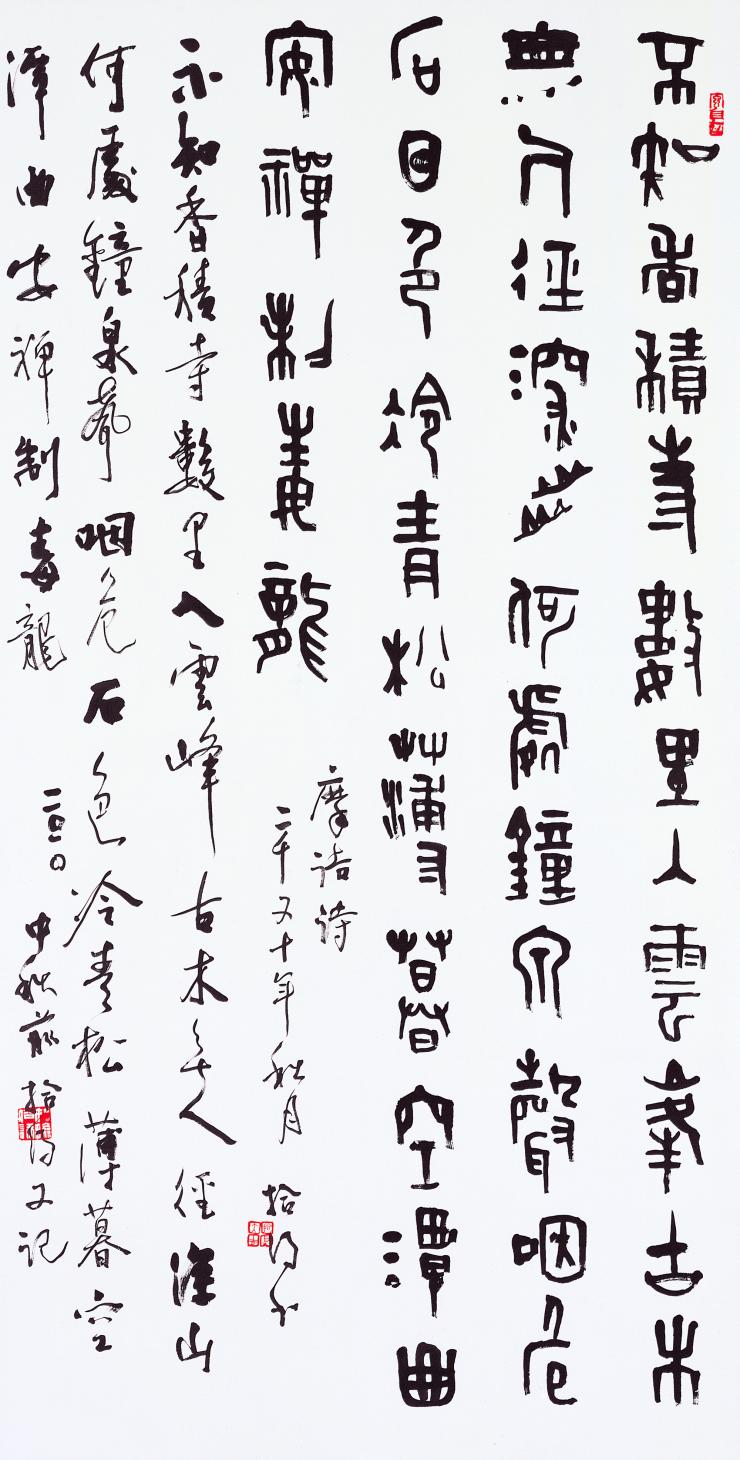 不知香積寺數里入雲峯古木
無人徑深山何處鐘泉聲咽危
石日色冷青松薄暮空潭曲
安禪制毒龍
摩詰詩
二千又十年秋月 拾得書
不知香積寺數里入雲峰古木無人徑深山
何處鐘泉聲咽危石色冷青松薄暮空
潭曲安禪制毒龍
二〇一〇 中秋前拾得又記